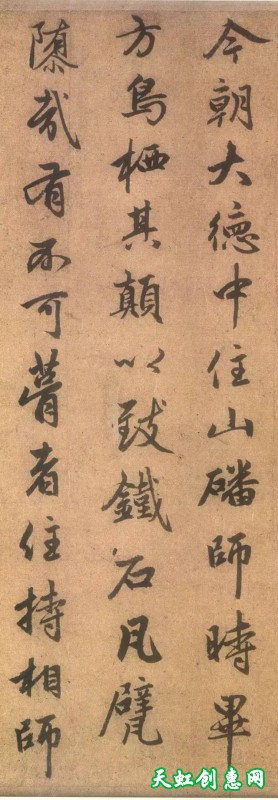 今朝大德中住山磻師時畢
方鳥栖其顛以致鐵石凡甓
哉有不可者住持相師
天虹创惠网